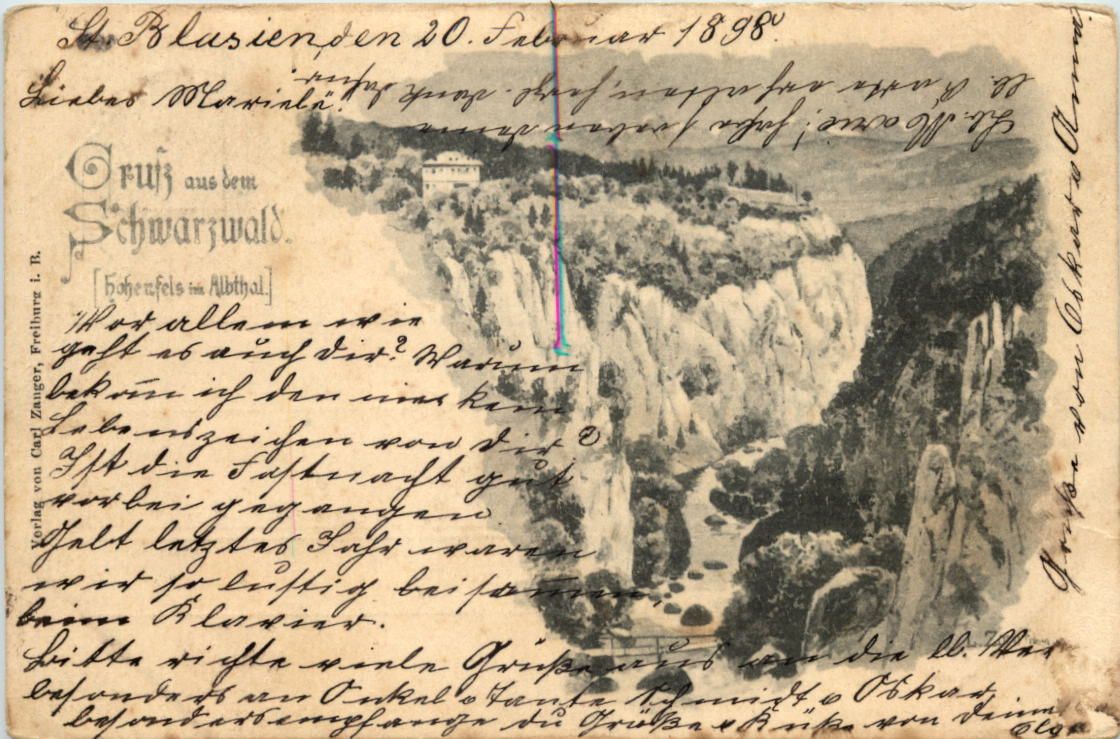 St. Blasien, den 20. Februar 1898.
Liebes Mariele!
Gruß aus dem
Schwarzwald.
[Hohenfels im Albthal.]
Verlag von Carl Zanger, Freiburg i. B.
Vor allem wie
geht es auch dir? Warum
bekom̄ ich den kein
Lebenszeichen von dir?
Ist die Fastnacht gut
vorbei gegangen
Gelt letztes Jahr waren
wir so lustig beisam̄en,
beim Klavier.
Bitte richte viele Grüße aus an die lb.
besonders an Onkel u Tante Schmidt u Oskar,
besonders empfange du Grüße u Küße von deine
Olga
Lb. Marie! habe soeben deine
lb. Karte erhalten, herzl. Dank
Grüße von Oskar u Anna